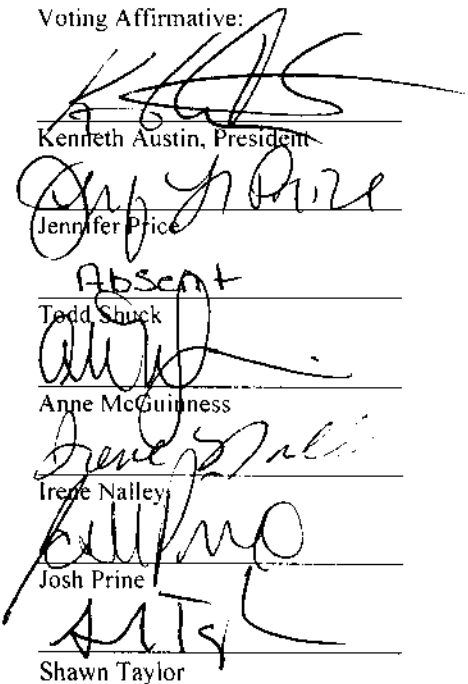 Voting Affirmative:
Kenneth Austin, President
Jennifer Price
Absent
Todd Shuck
Anne McGuinness
Irene
Irene Nailey
Josh Prine
Shawn Taylor